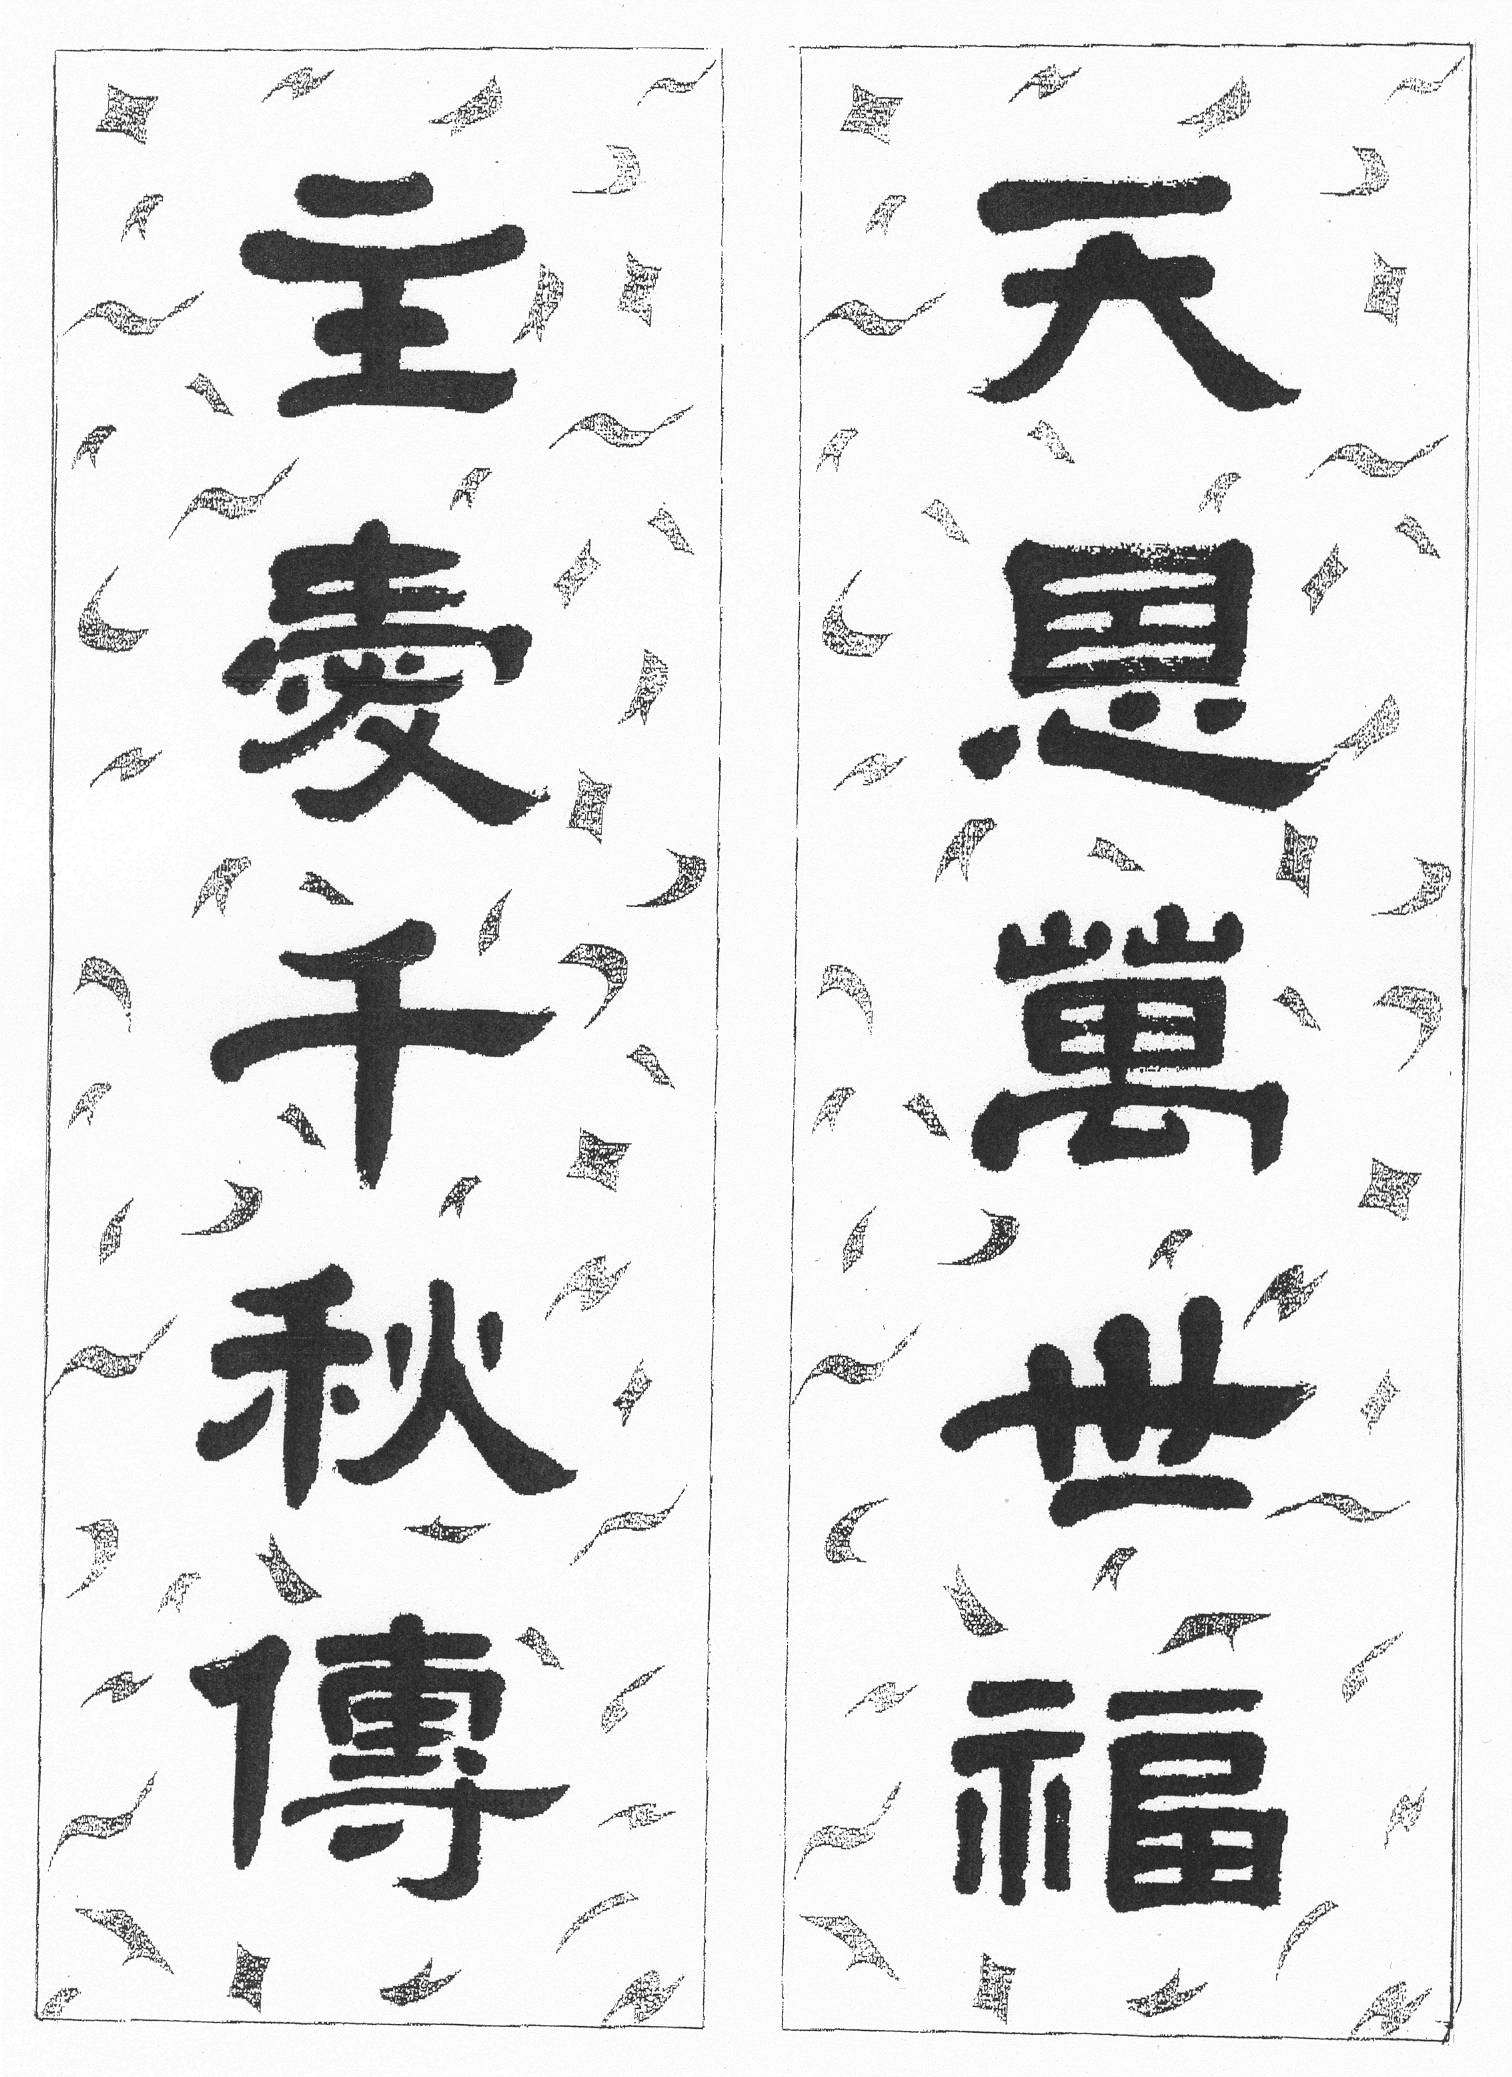 天恩萬世福
主愛千秋傳